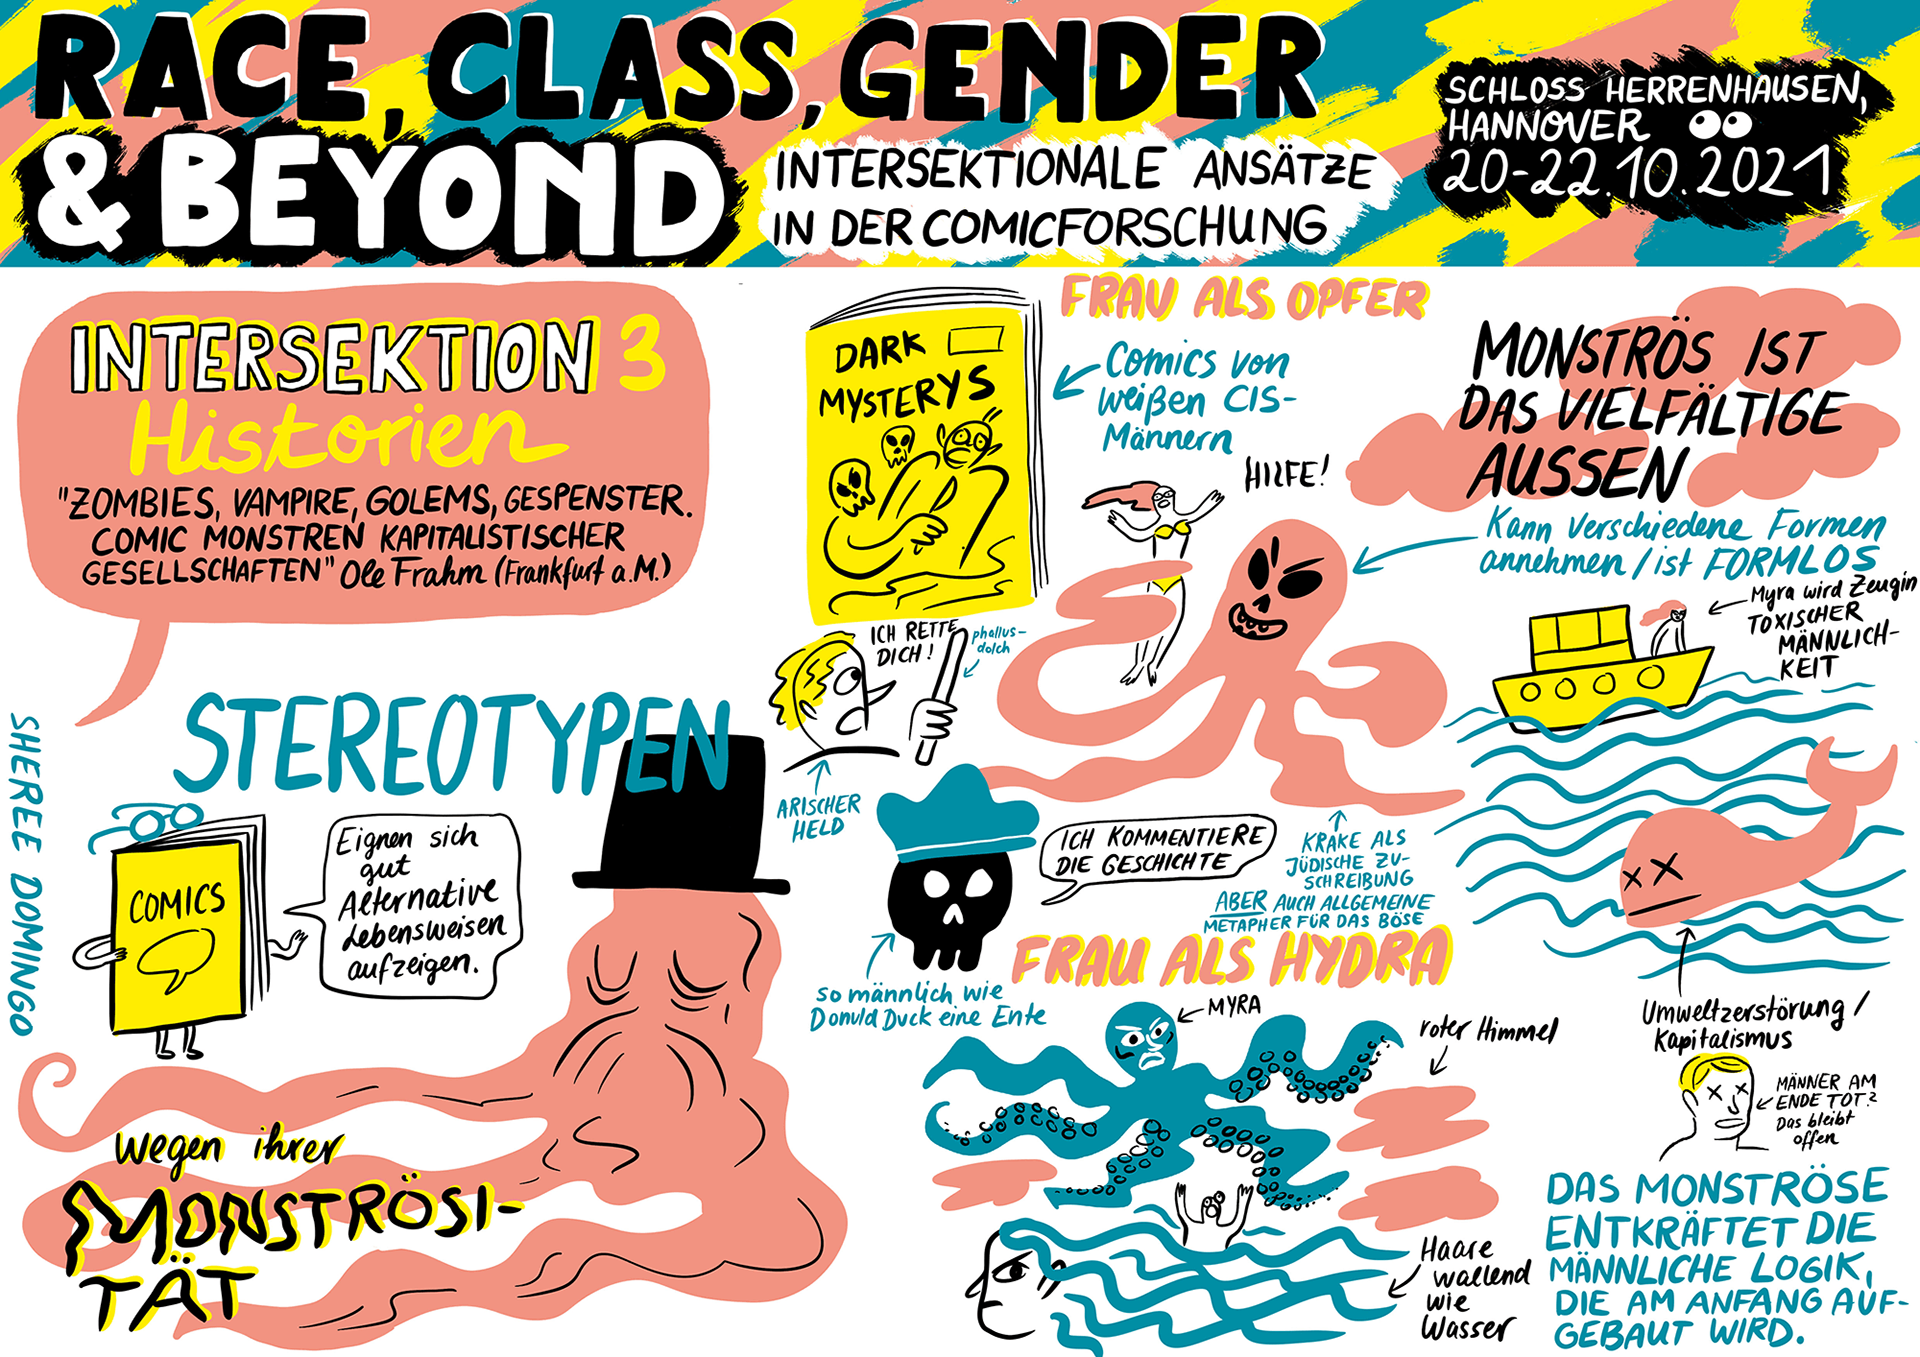 RACE, CLASS, GENDER
& BEYOND
INTERSEKTIONALE ANSÄTZE
IN DER COMICFORSCHUNG
SCHLOSS HERRENHAUSEN,
HANNOVER
20-22.10.2021
INTERSEKTION 3
Historien
"ZOMBIES, VAMPIRE, GOLEMS, GESPENSTER.
COMIC MONSTREN KAPITALISTISCHER
GESELLSCHAFTEN" Ole Frahm (Frankfurt a.M.)
STEREOTYPEN
SHEREE DOMINGO
COMICS
Eignen sich
gut
Alternative
Lebensweisen
aufzeigen.
Wegen ihrer
MONSTRÖSI-
TÄT
DARK
MYSTERYS
FRAU ALS OPFER
Comics von
weißen CIS-
Männern
HILFE!
ICH RETTE
DICH!
phallus-
dolch
ARISCHER
HELD
ICH KOMMENTIERE
DIE GESCHICHTE
so männlich wie
Donald Duck eine Ente
KRAKE ALS
JÜDISCHE ZU-
SCHREIBUNG
ABER AUCH ALLGEMEINE
METAPHER FÜR DAS BÖSE
FRAU ALS HYDRA
MYRA
roter Himmel
Haare
wallend
wie
Wasser
MONSTRÖS IST
DAS VIELFÄLTIGE
AUSSEN
Kann verschiedene Formen
annehmen / ist FORMLOS
Myra wird Zeugin
TOXISCHER
MÄNNLICH-
KEIT
Umweltzerstörung /
Kapitalismus
MÄNNER AM
ENDE TOT?
Das bleibt
offen
DAS MONSTRÖSE
ENTKRÄFTET DIE
MÄNNLICHE LOGIK,
DIE AM ANFANG AUF-
GEBAUT WIRD.